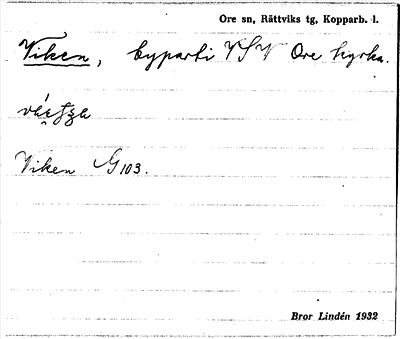 Ore sn, Rättviks tg, Kopparb. l.
Viken, byparti VSV Ore kyrka.
Viken G 103.
Bror Lindén 1932